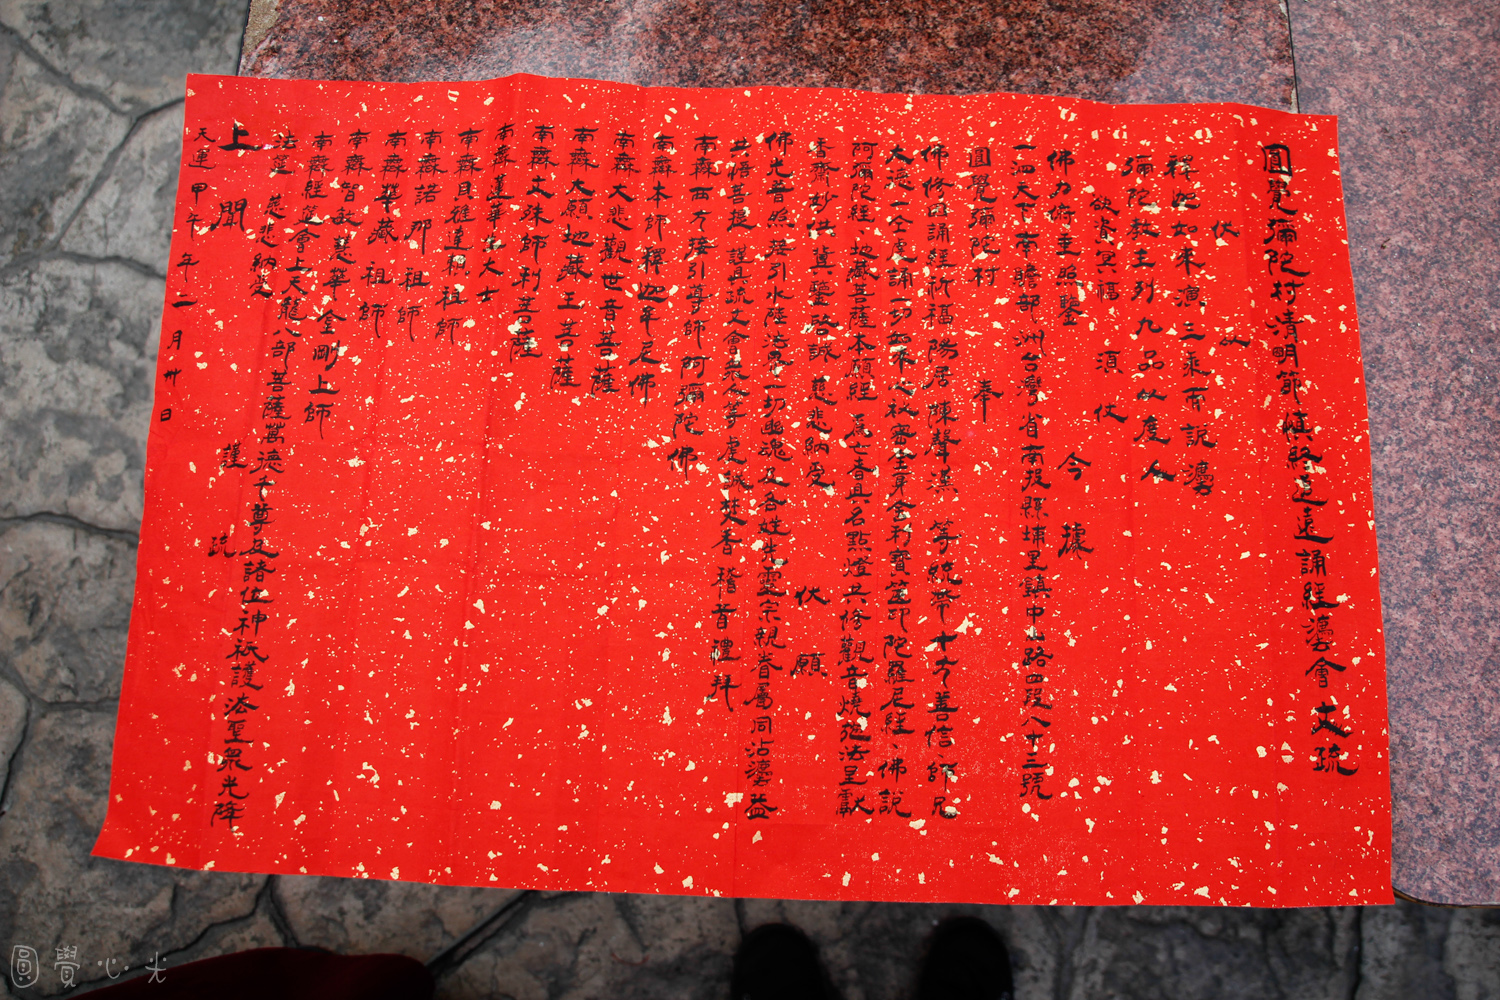 圓覺彌陀村清明節慎終追遠誦經灋會文疏
伏以
釋迦如來演三乘而說灋
彌陀教主列九品以度人
欲資冥福 須仗
佛力俯垂照鑒 今據
一泗天下南瞻部洲台灣省南投縣埔里鎮中山路四段八十三號
圓覺彌陀村 奉
佛修因誦經祈福陽居陳聲漢等統帶十方善信師兄
大德一仝虔誦一切如來心秘密全身舍利寶篋印陀羅尼經、佛說
阿彌陀經、地藏菩薩本願經 爲亡者具名點燈共修觀音燒施法呈獻
香齋妙供冀鑒啓誠 慈悲納受 伏願
佛光普照接引水陸法界一切幽魂及各姓先靈宗親眷屬同沾灋益
共悟菩提 謹具疏文會衆人等虔誠焚香稽首禮拜
南無西方接引導師阿彌陀佛
南無本師釋迦牟尼佛
南無大悲觀世音菩薩
南無大願地藏王菩薩
南無文殊師利菩薩
南無蓮華生大士
南無貝雅達賴祖師
南無諾那祖師
南無華藏祖師
南無智敏慧華金剛上師
南無經筵會上天龍八部菩薩萬德千尊及諸位神祇護法聖衆光降
法筵 慈悲納受
上聞 謹疏
天運甲午年二月卅日
圓覺心光